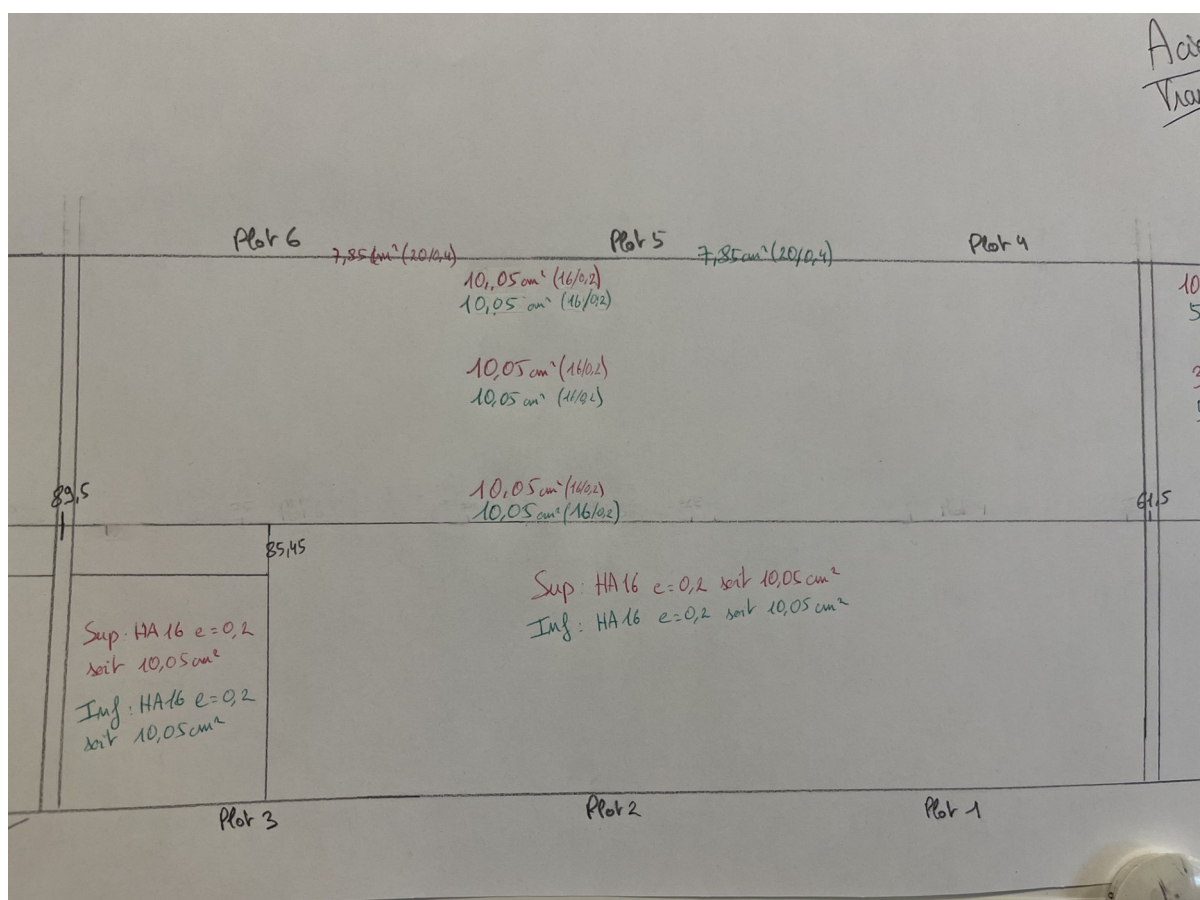 Plot 6
Plot 5
Plot 4
7,85 cm² (20/0,4)
7,85 cm² (20/0,4)
10,05 cm² (16/0,2)
10,05 cm² (16/0,2)
10,05 cm² (16/0,2)
10,05 cm² (16/0,2)
89,5
10,05 cm² (16/0,2)
10,05 cm² (16/0,2)
61,5
85,45
Sup : HA 16 e=0,2 soit 10,05 cm²
Inf : HA 16 e=0,2 soit 10,05 cm²
Sup : HA 16 e=0,2
soit 10,05 cm²
Inf : HA16 e=0,2
soit 10,05 cm²
Plot 3
Plot 2
Plot 1